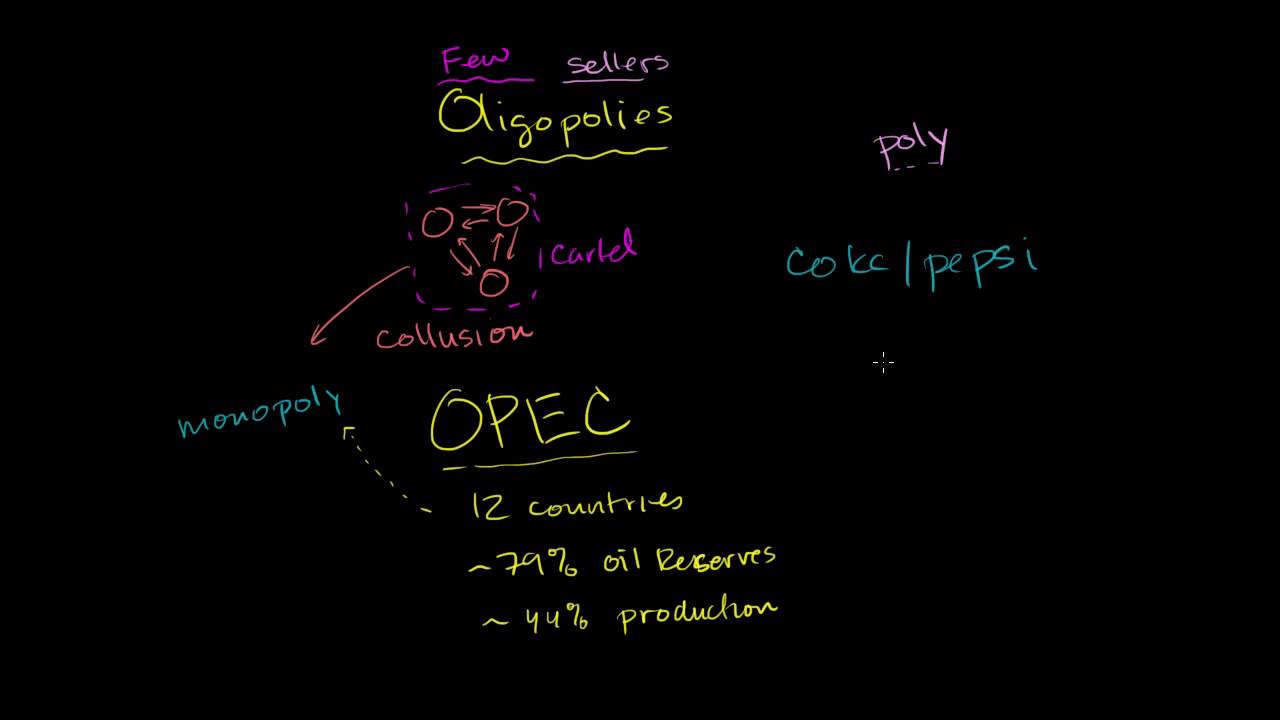 Few sellers
Oligopolies
poly
cartel
coke/pepsi
collusion
monopoly
OPEC
12 countries
~79% oil Reserves
~44% production